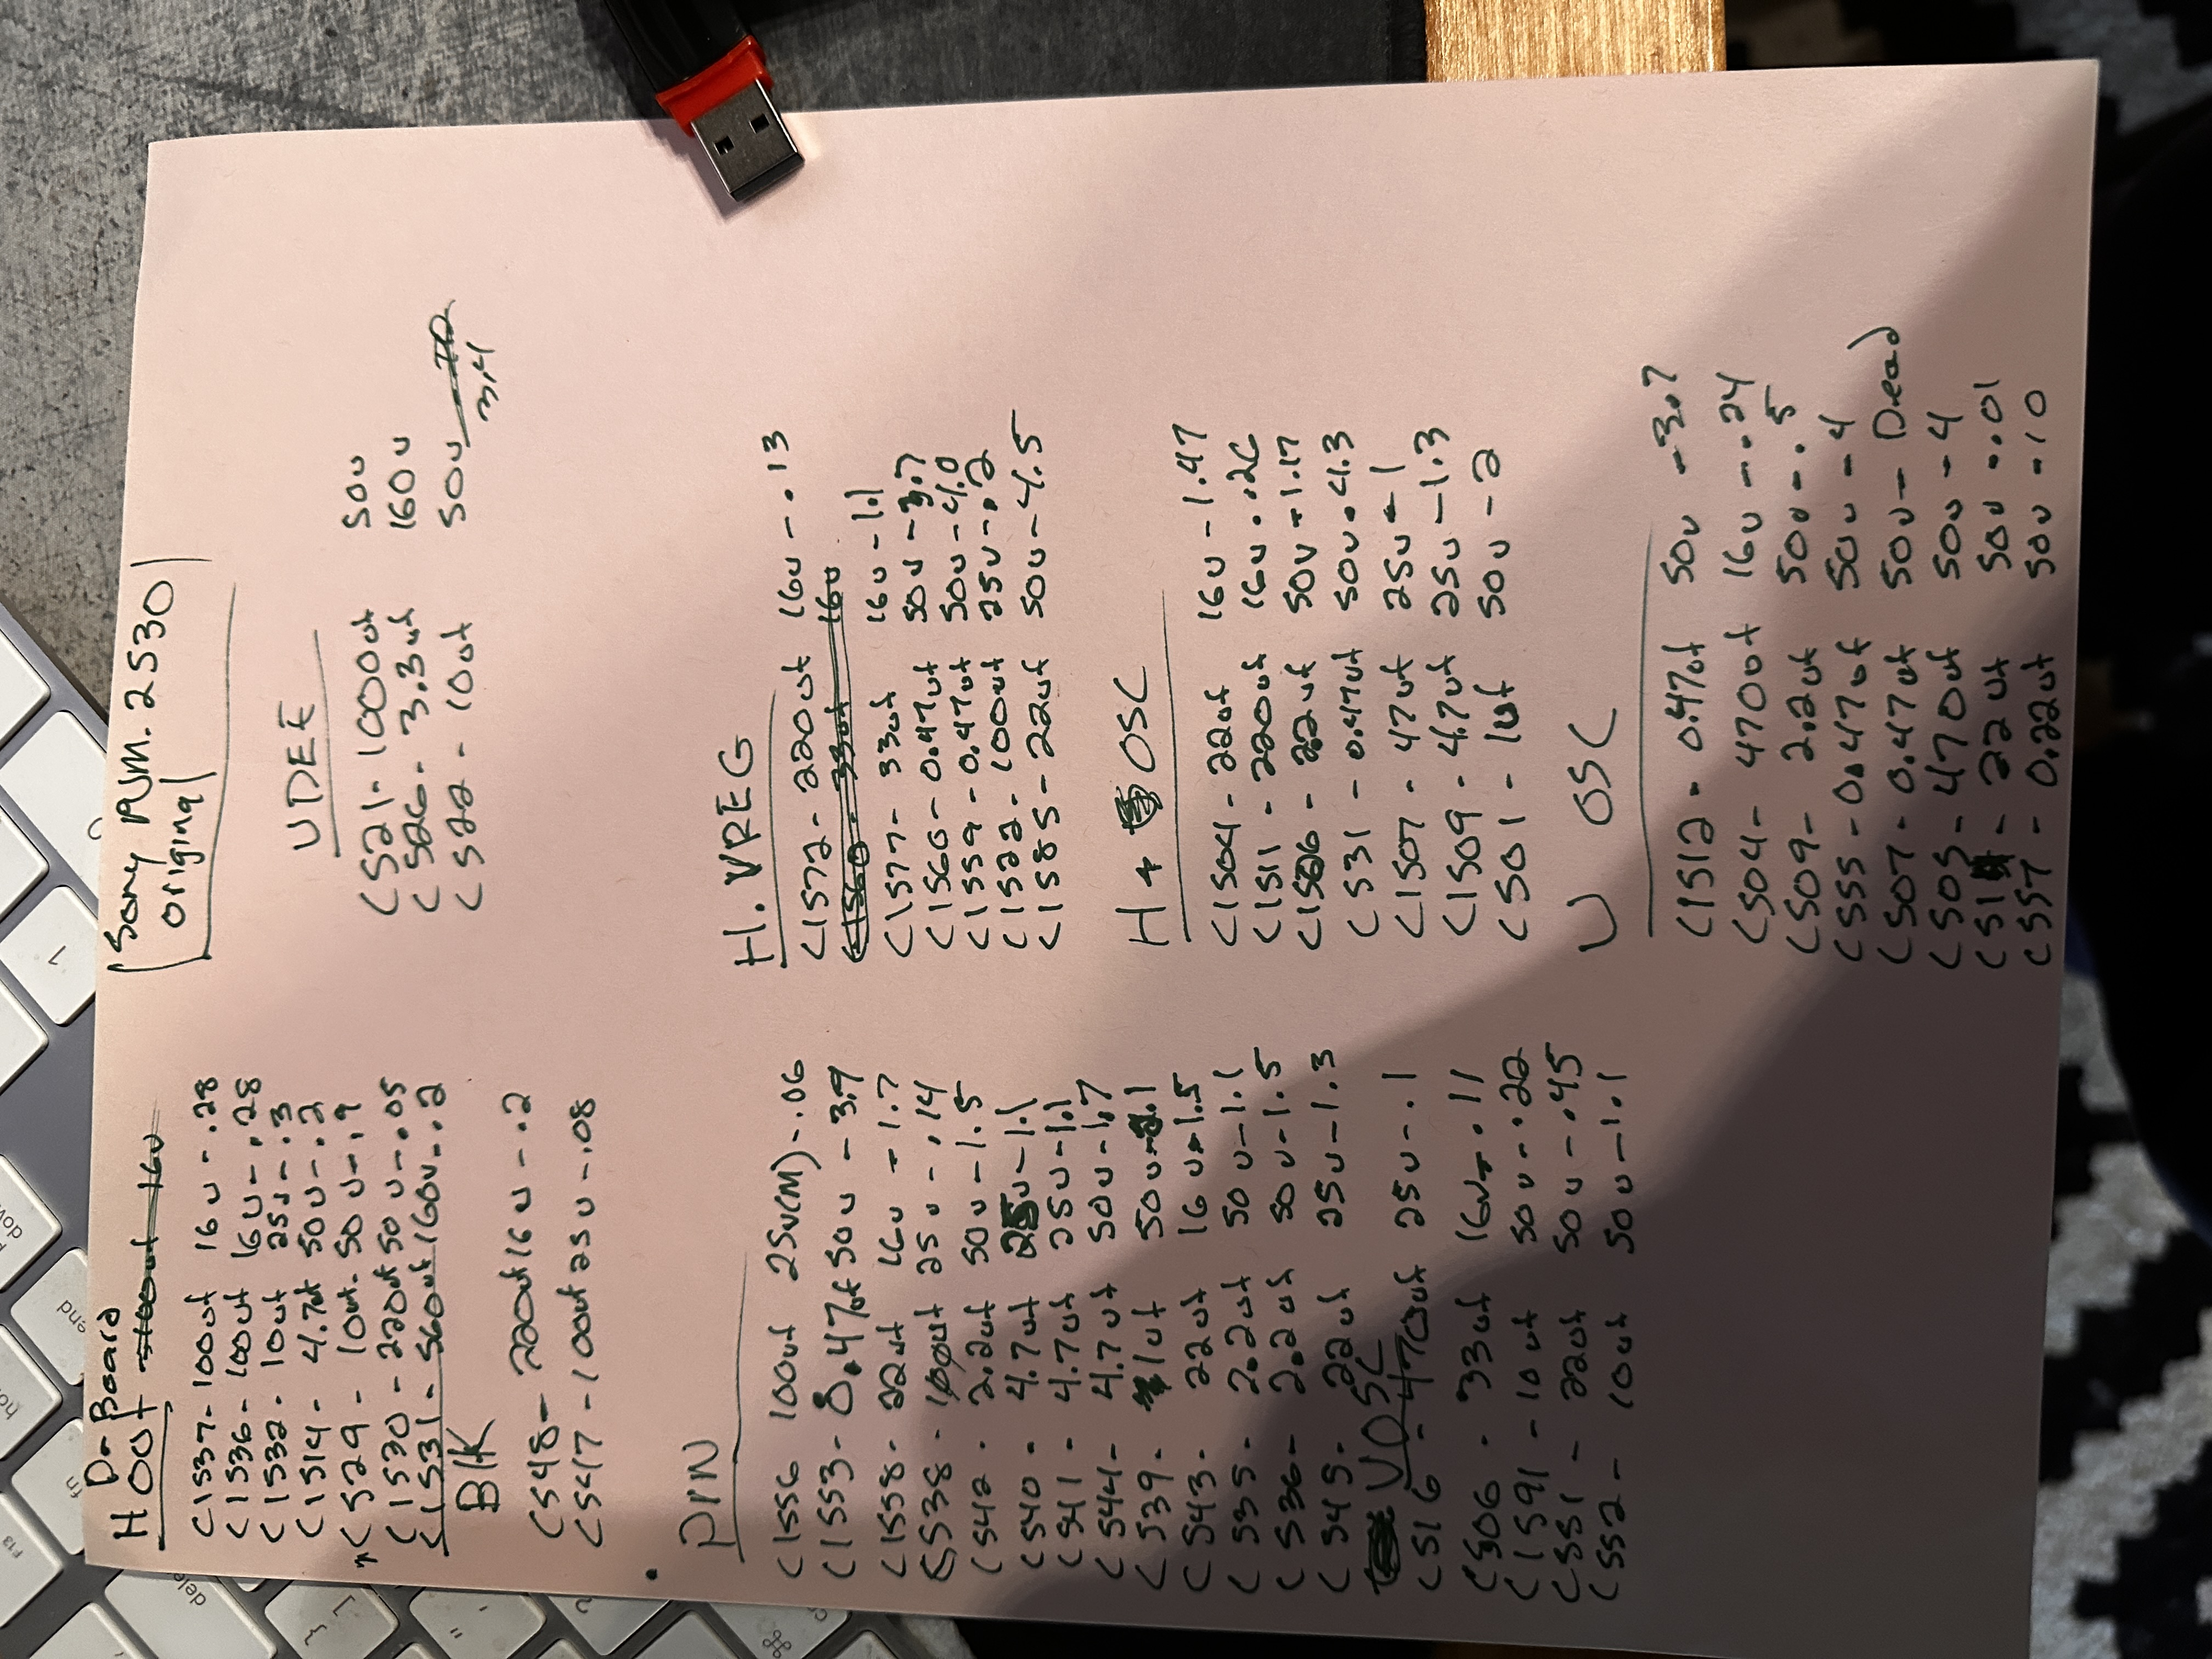 D-Board
H OUT
C1537-100uf 16v-.28
C1536-100uf 16v-.28
C1532-10uf 25v-.3
C1514-4.7uf 50v-.2
C529-10uf-50v-.9
C1530-220uf 50v-.05
C1531-560uf 160v-.2
BlK
C548-220uf 16v-.2
C547-100uf 25v-.08
PIN
C1556 100uf 25v(M)-.06
C1553-0.47uf 50v-3.9
C1558-22uf 16v-1.7
C538-100uf 25v-.14
C542-2.2uf 50v-1.5
C540-4.7uf 25v-1.1
C541-4.7uf 25v-1.1
C544-4.7uf 50v-1.7
C539-1uf 50v-3.1
C543-22uf 16v-1.5
C535-2.2uf 50v-1.1
C536-2.2uf 50v-1.5
C545-22uf 25v-1.3
VOSC
C516-470uf 25v-.1
C506-33uf 16v-.11
C1591-10uf 50v-.22
C551-22uf 50v-.45
C552-10uf 50v-1.1
Sony PVM-2530
Original
VDEF
C521-1000uf 50v
C526-3.3uf 160v
C522-10uf 50v
3.4
H. VREG
C1572-220uf 16v-.13
C1560-33uf 16v
C1577-33uf 16v-1.1
C1560-0.47uf 50v-3.7
C1559-0.47uf 50v-4.0
C1522-100uf 25v-.2
C1585-22uf 50v-4.5
H + OSC
C1504-22uf 16v-1.47
C1511-220uf 16v-.26
C1506-22uf 50v-1.17
C531-0.47uf 50v-4.3
C1507-47uf 25v-1
C1509-4.7uf 25v-1.3
C501-1uf 50v-2
V OSC
C1512-0.47uf 50v-3.7
C504-470uf 16v-.24
C509-2.2uf 50v-.5
C555-0.47uf 50v-4
C507-0.47uf 50v-Dead
C505-470uf 50v-4
22uf 50v-.01
C557-0.22uf 50v-10